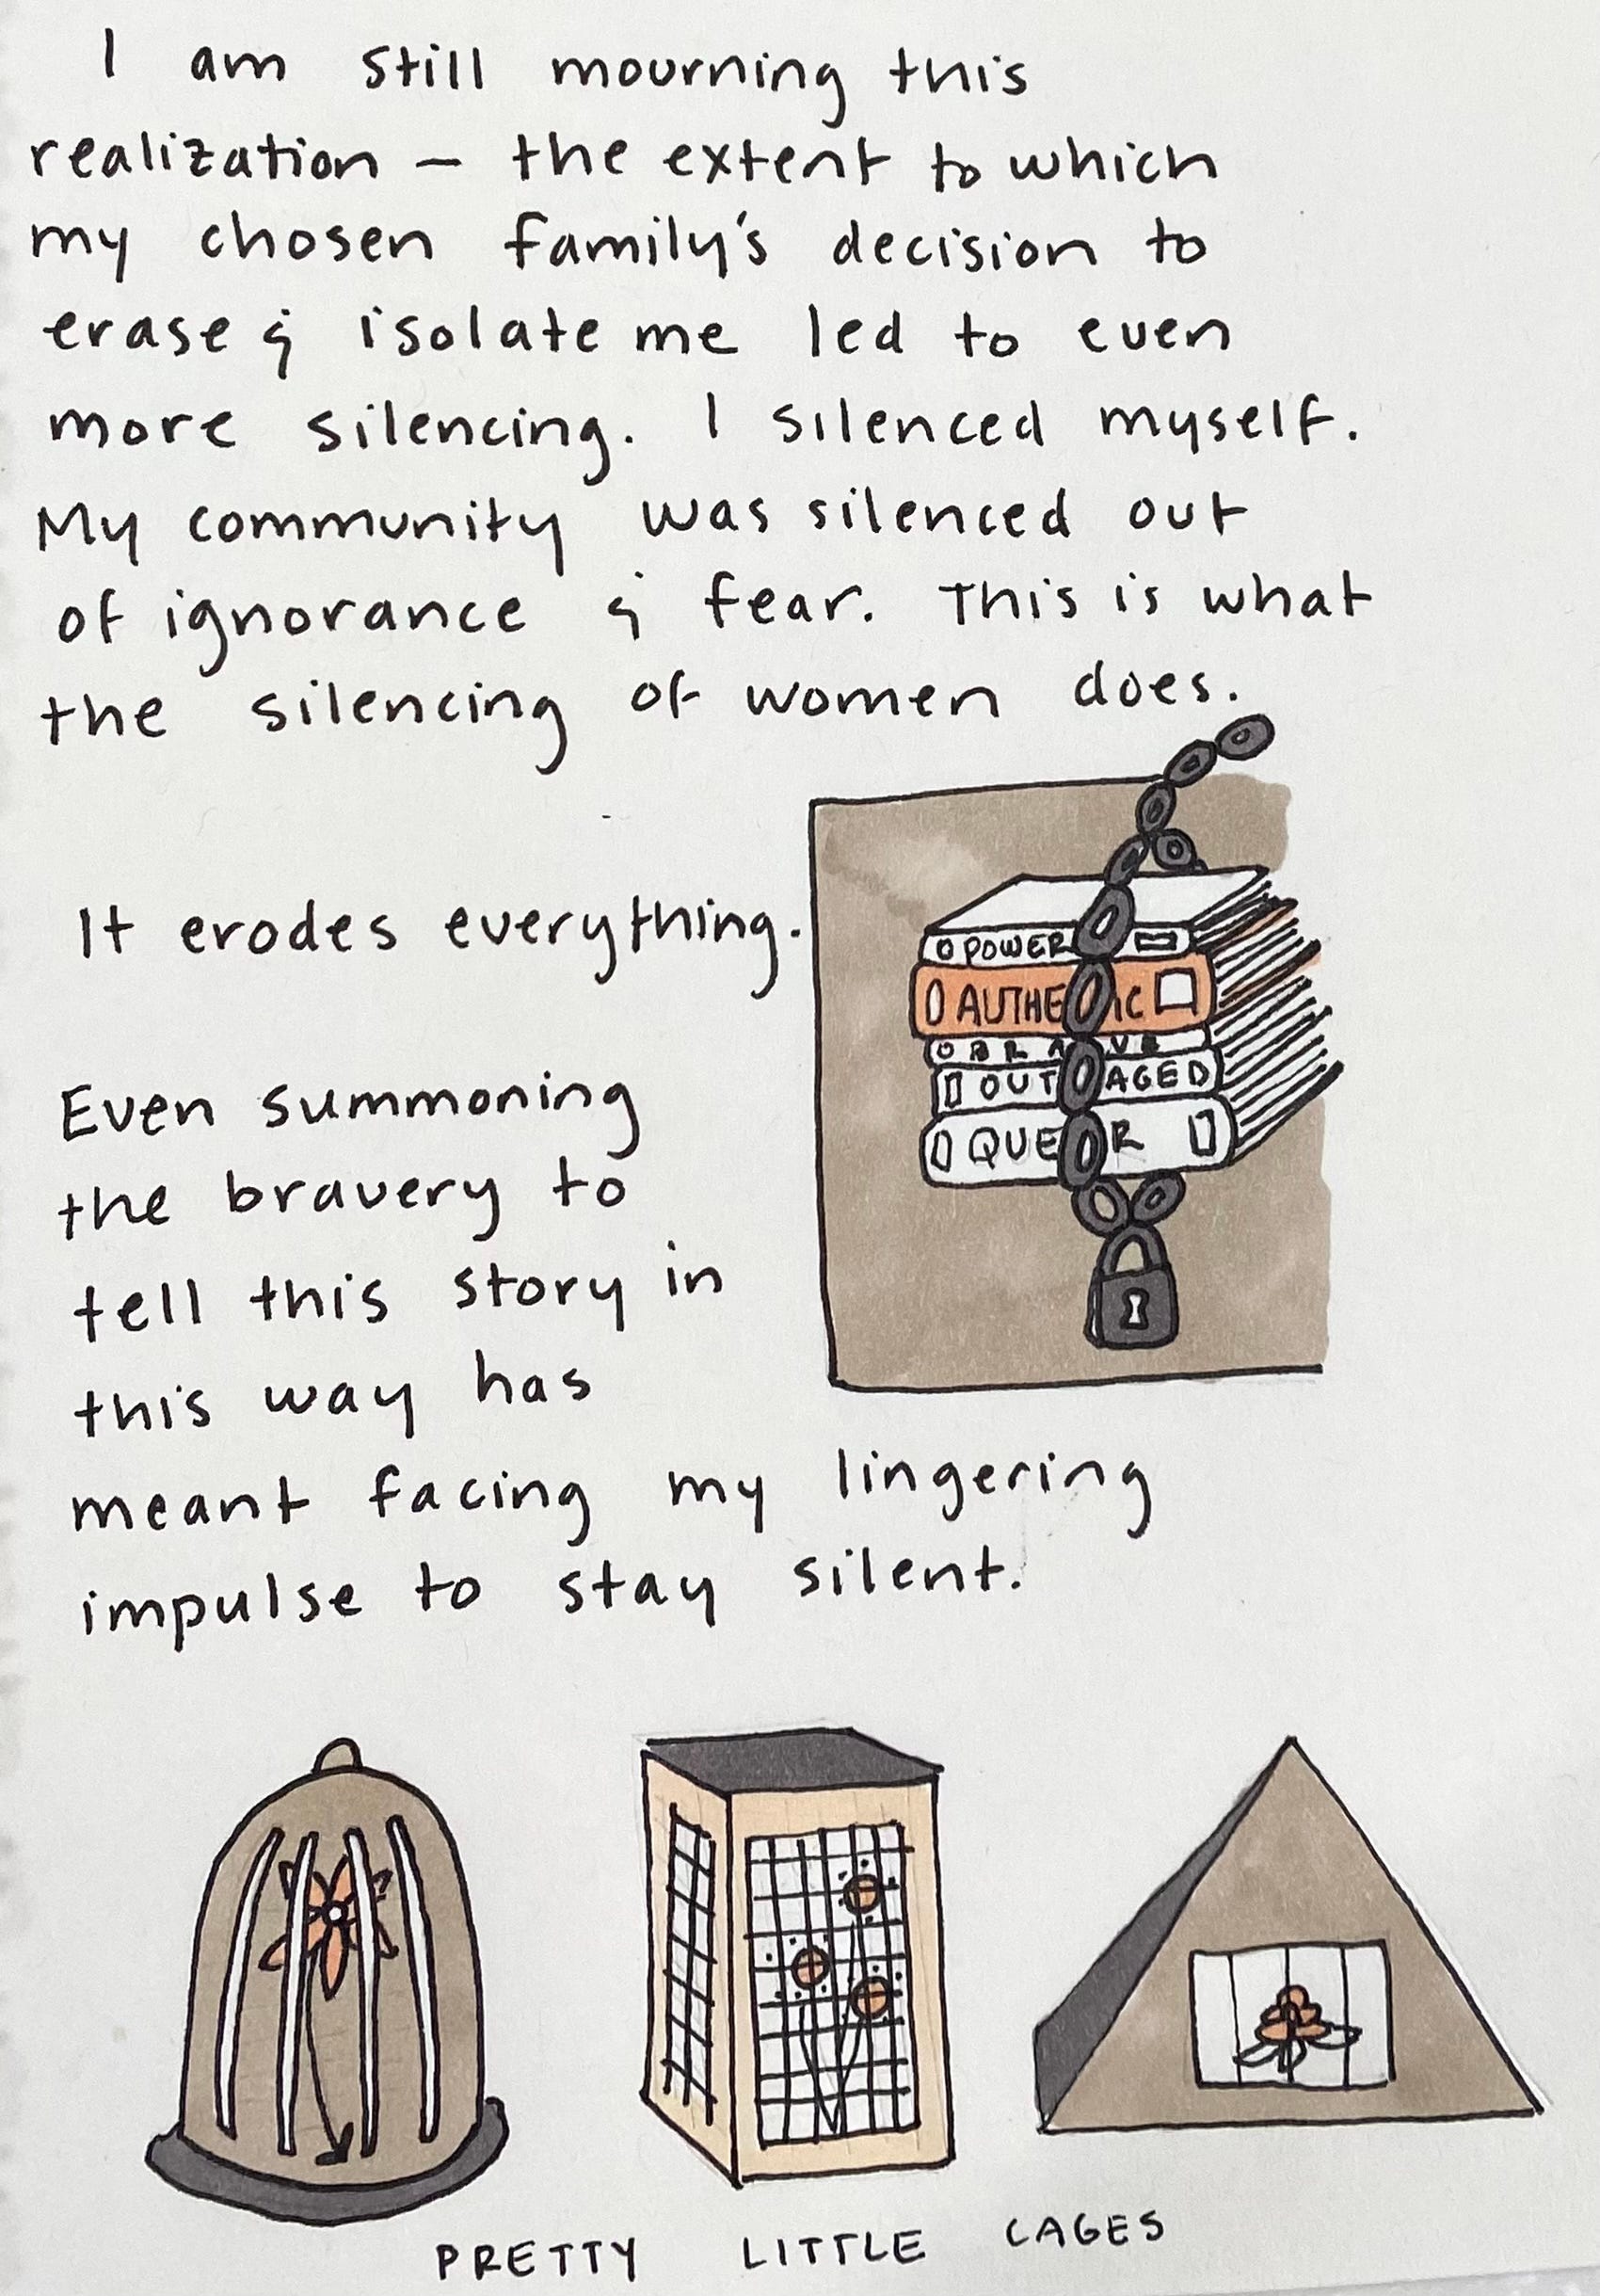 I am still mourning this
realization — the extent to which
my chosen family's decision to
erase & isolate me led to even
more silencing. I silenced myself.
My community was silenced out
of ignorance & fear. This is what
the silencing of women does.
It erodes everything.
POWER
AUTHE IC
BRA VE
OUT AGED
QUE R
Even summoning
the bravery to
tell this story in
this way has
meant facing my lingering
impulse to stay silent.
PRETTY LITTLE CAGES